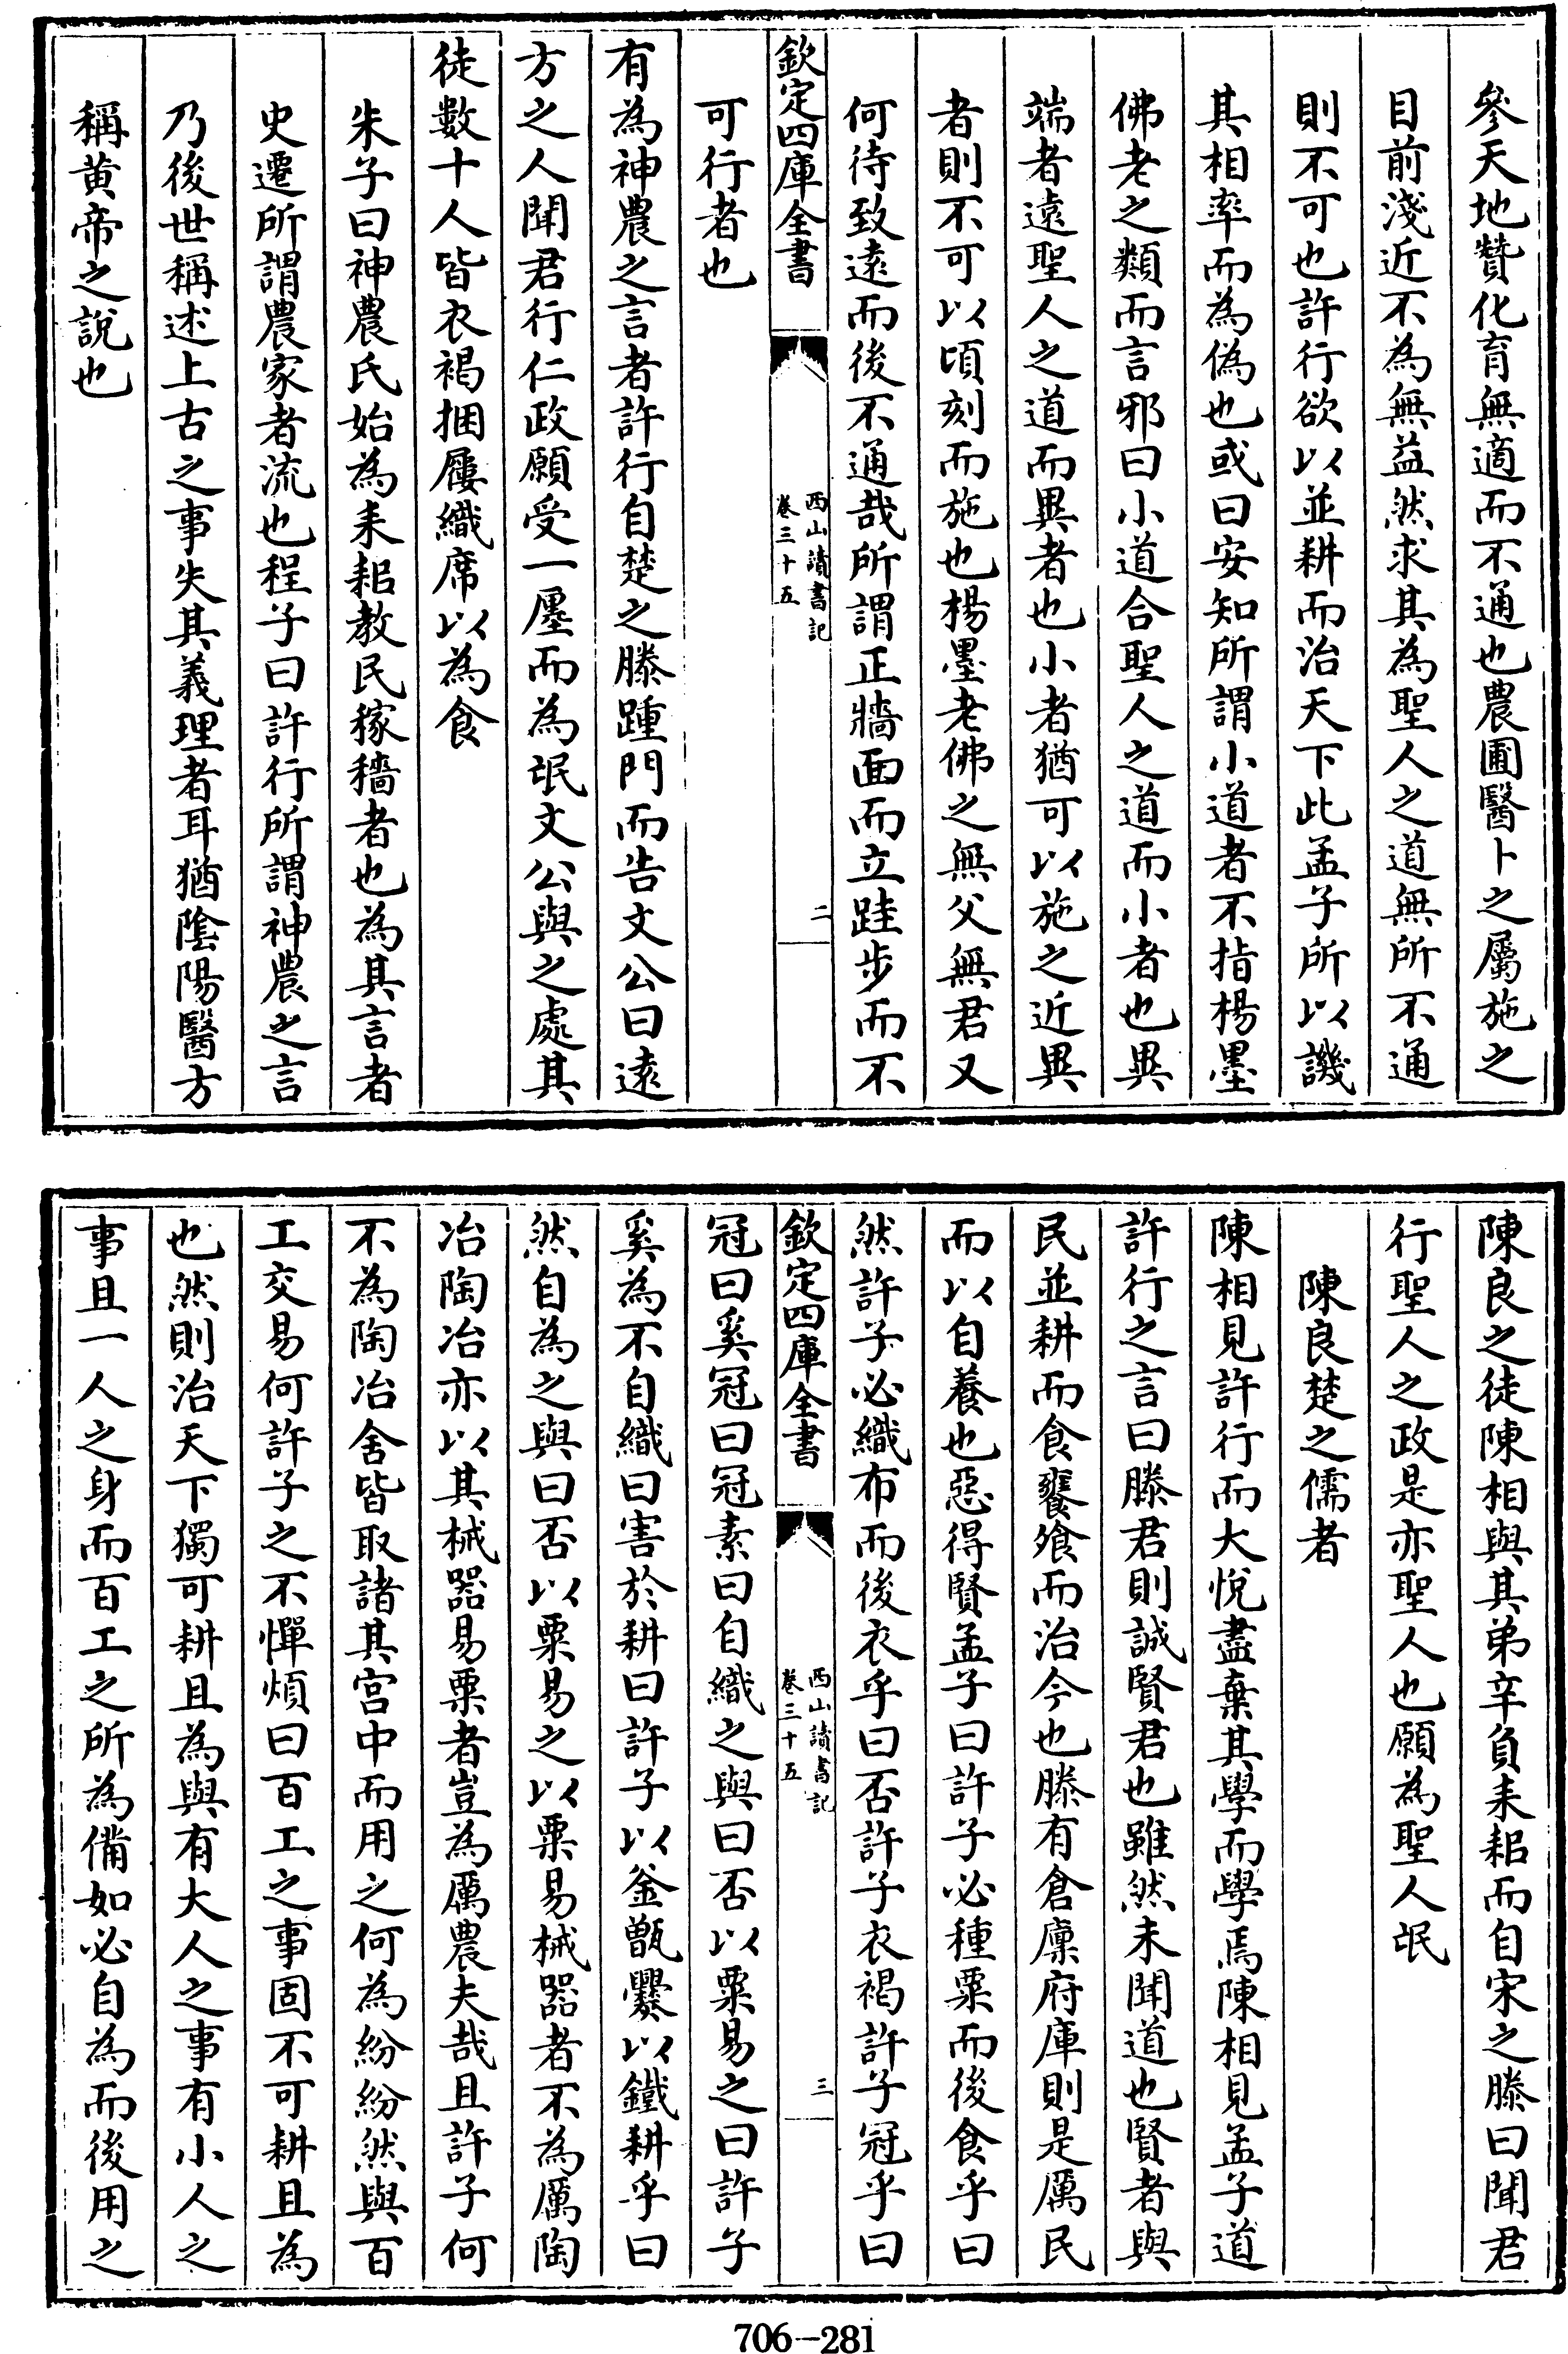 參天地贊化育無適而不通也農圃醫卜之屬施之
目前淺近不為無益然求其為聖人之道無所不通
則不可也許行欲以並耕而治天下此孟子所以譏
其相率而為偽也或曰安知所謂小道者不指楊墨
佛老之類而言邪曰小道合聖人之道而小者也異
端者遠聖人之道而異者也小者猶可以施之近異
者則不可以頃刻而施也楊墨老佛之無父無君又
何待致遠而後不通哉所謂正牆面而立跬步而不
欽定四庫全書
西山讀書記
卷三十五
二
可行者也
有為神農之言者許行自楚之滕踵門而告文公曰遠
方之人聞君行仁政願受一廛而為氓文公與之處其
徒數十人皆衣褐捆屨織席以為食
朱子曰神農氏始為耒耜教民稼穡者也為其言者
史遷所謂農家者流也程子曰許行所謂神農之言
乃後世稱述上古之事失其義理者耳猶陰陽醫方
稱黄帝之說也
陳良之徒陳相與其弟辛負耒耜而自宋之滕曰聞君
行聖人之政是亦聖人也願為聖人氓
陳良楚之儒者
陳相見許行而大悅盡棄其學而學焉陳相見孟子道
許行之言曰滕君則誠賢君也雖然未聞道也賢者與
民並耕而食饔飱而治今也滕有倉廩府庫則是厲民
而以自養也惡得賢孟子曰許子必種粟而後食乎曰
然許子必織布而後衣乎曰否許子衣褐許子冠乎曰
欽定四庫全書
西山讀書記
卷三十五
三
冠曰奚冠曰冠素曰自織之與曰否以粟易之曰許子
奚為不自織曰害於耕曰許子以釜甑爨以鐵耕乎曰
然自為之與曰否以粟易之以粟易械器者不為厲陶
冶陶冶亦以其械器易粟者豈為厲農夫哉且許子何
不為陶冶舍皆取諸其宫中而用之何為紛紛然與百
工交易何許子之不憚煩曰百工之事固不可耕且為
也然則治天下獨可耕且為與有大人之事有小人之
事且一人之身而百工之所為備如必自為而後用之
706-281